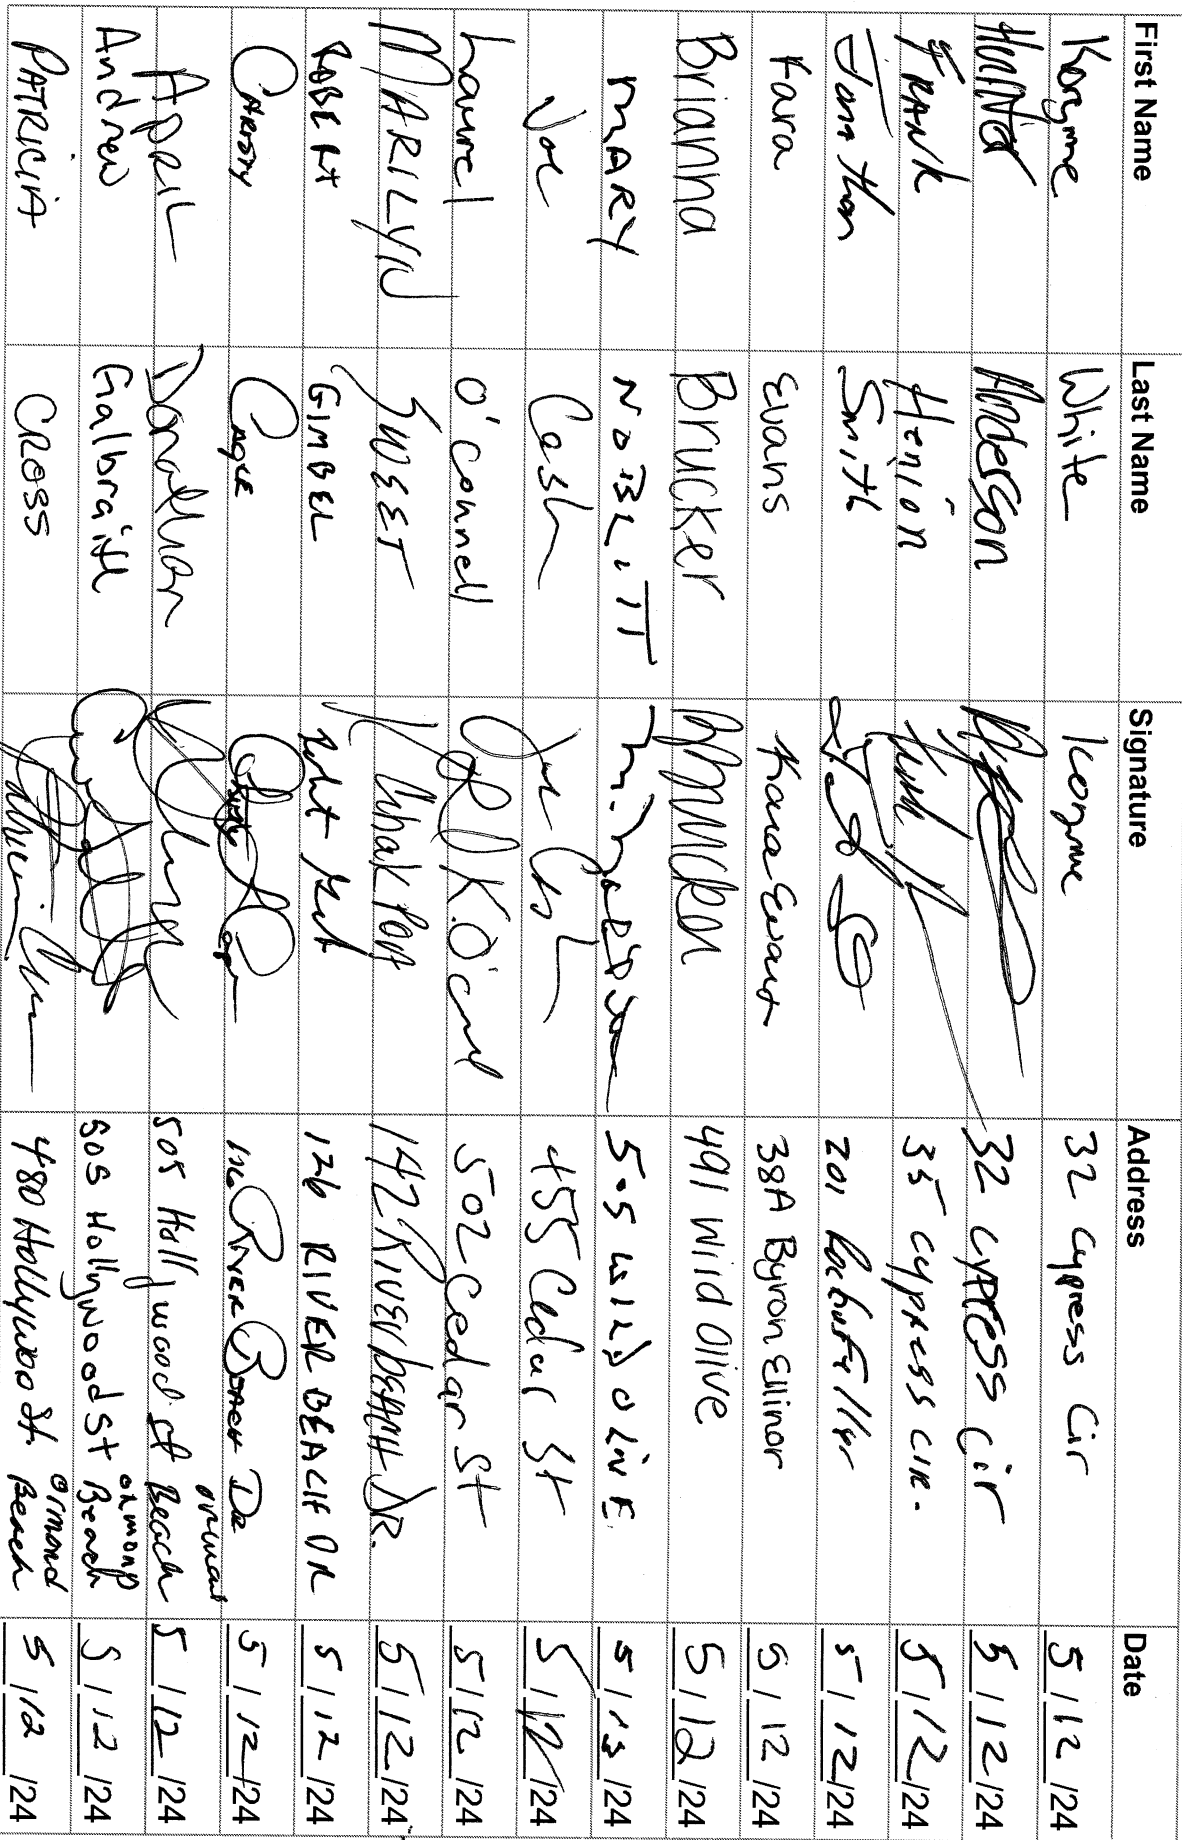 First Name Last Name Signature Address Date
Korynne White Korynne 32 Cypress Cir 5/12/24
Hunter Anderson 32 cypress Cir 5/12/24
FRANK Henion 35 cypress CIR. 5/12/24
Jonathan Smith 201 5/12/24
Kara Evans Kara Evans 38A Byron Ellinor 5/12/24
Brianna Brucker BBrucker 491 Wild Olive 5/12/24
MARY NOBLITT 5 WILD OLIVE 5/13/24
Joe Cash Joe Cash 455 Cedar St 5/12/24
Laurel O'Connell 502 Cedar St 5/12/24
MARILYN SWEET 142 RIVERbEACH DR. 5/12/24
ROBERT GIMBEL 126 RIVER BEACH DR 5/12/24
CHRISTY CAGLE 116 RIVER BEACH DR 5/12/24
APRIL Donathan 505 Hollywood st Ormond Beach 5/12/24
Andrew Galbraith 505 Hollywood St ORMOND Beach 5/12/24
PATRICIA CROSS 480 Hollywood St. Ormond Beach 5/12/24